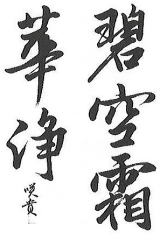 碧空霜
華浄
咲貴